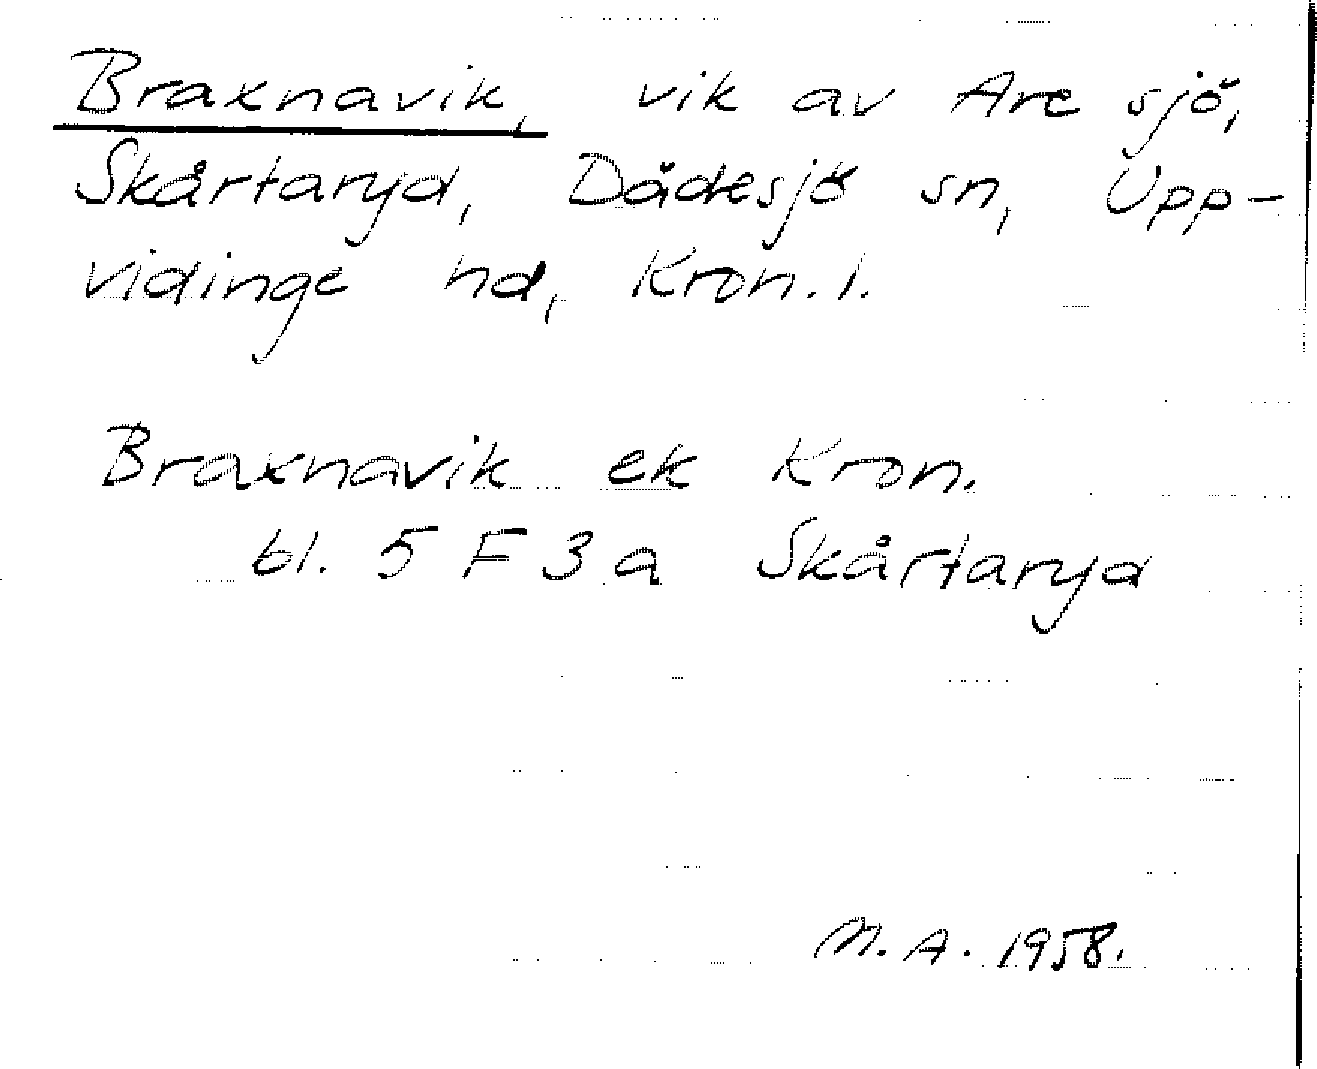 Braxnavik, vik av Are sjö,
Skårtaryd, Dädesjö sn, Upp-
vidinge hd, Kron. l.
Braxnavik ek Kron.
bl. 5 F 3 a Skårtaryd
M. A. 1958.